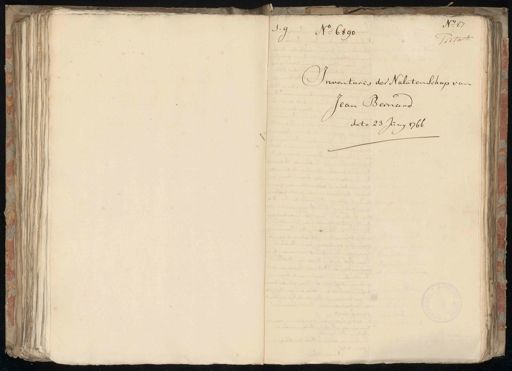 N.º 6890
N.º 67
Inventaris der Nalatenschap van
Jean Bernard
dato 23 Juny 1766